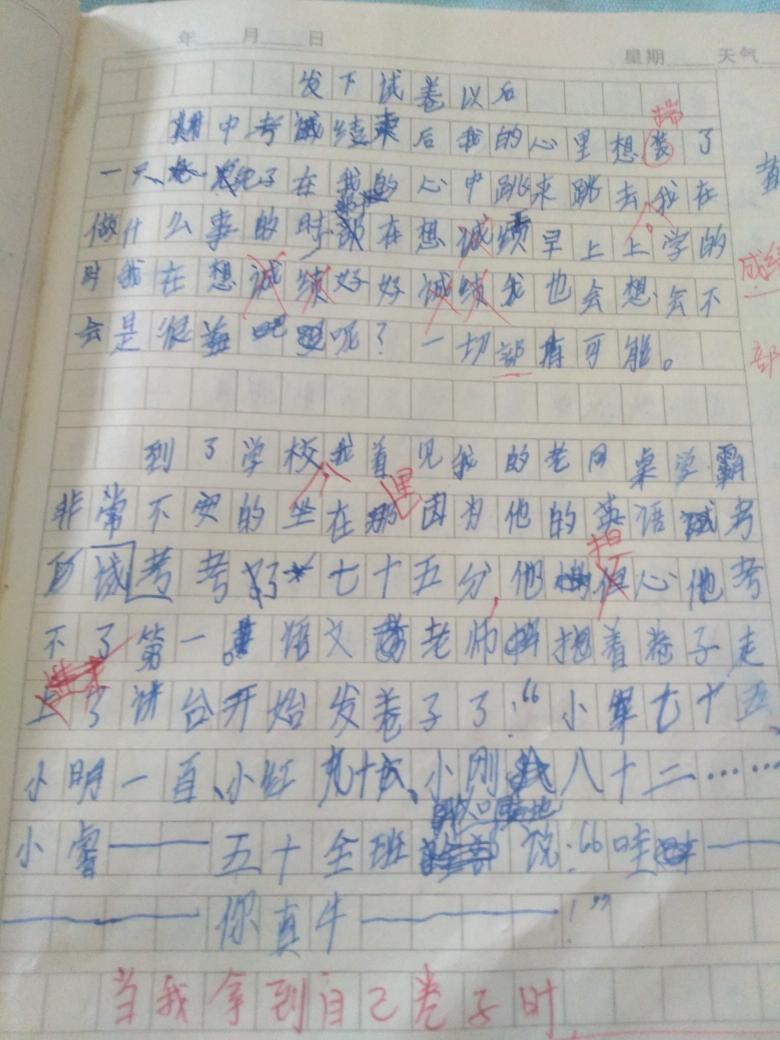 年 月 日
星期 天气
发下试卷以后
期中考诚绩来后我的心里想装了
一只兔子在我的心中跳来跳去我在
做什么事的时都在想诚绩早上上学的
时我在想诚绩好好诚绩我也会想会不
会是很差呢？一切部有可能。
到了学校，我首见我的老同桌学霸
非常不安的坐在那里因为他的英语试考
考考了七十五分，他担心他考
不了第一。语文老师抱着卷子走
上了讲台开始发卷子了：“小军七十五、
小明一百、小红九十八、小刚八十二……
小睿——五十全班说：“哇——
——你真牛——！”
当我拿到自己卷子时
成绩
部